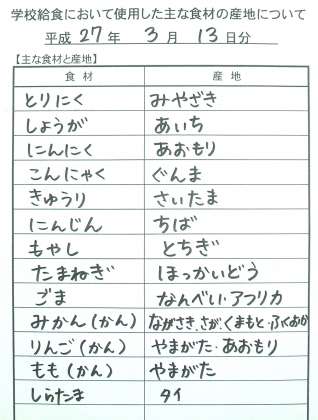 学校給食において使用した主な食材の産地について
平成 27 年 3 月 13 日分
【主な食材と産地】
食材 産地
とりにく みやざき
しょうが あいち
にんにく あおもり
こんにゃく ぐんま
きゅうり さいたま
にんじん ちば
もやし とちぎ
たまねぎ ほっかいどう
ごま なんべい・アフリカ
みかん(かん) ながさき・さが・くまもと・ふくおか
りんご(かん) やまがた・あおもり
もも(かん) やまがた
しらたま タイ